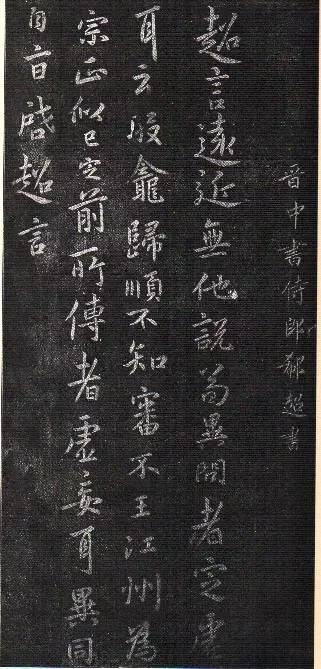 晉中書侍郎郗超書
超言遠近無他說為異問者定虛
耳云段龕歸順不知審不王江州為
宗正似已定前所傳者虛妄耳異同
啟超言